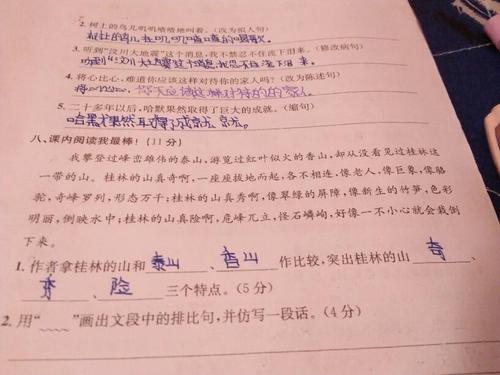 2. 树上的鸟儿叽叽喳喳地叫着。(改为拟人句)
树上的鸟儿在叽叽喳喳的唱歌
3. 听到“汶川大地震”这个消息,我不禁忍不住流下泪来。(修改病句)
听到“汶川大地震这个消息,我忍不住流下泪 来
4. 将心比心,难道你应该这样对待你的家人吗?(改为陈述句)
将心比心,你不应该这样对待你的家人
5. 二十多年以后,哈默果然取得了巨大的成就。(缩句)
哈默果然取得了成就
八、课内阅读我最棒!(11分)
我攀登过峰峦雄伟的泰山,游览过红叶似火的香山,却从没看见过桂林这
一带的山。桂林的山真奇啊,一座座拔地而起,各不相连,像老人,像巨象,像骆
驼,奇峰罗列,形态万千;桂林的山真秀啊,像翠绿的屏障,像新生的竹笋,色彩
明丽,倒映水中;桂林的山真险啊,危峰兀立,怪石嶙峋,好像一不小心就会栽倒
下来。
1. 作者拿桂林的山和 泰山 、 香山 作比较,突出桂林的山 奇 、
秀 、 险 三个特点。(5分)
2. 用“﹏﹏”画出文段中的排比句,并仿写一段话。(4分)